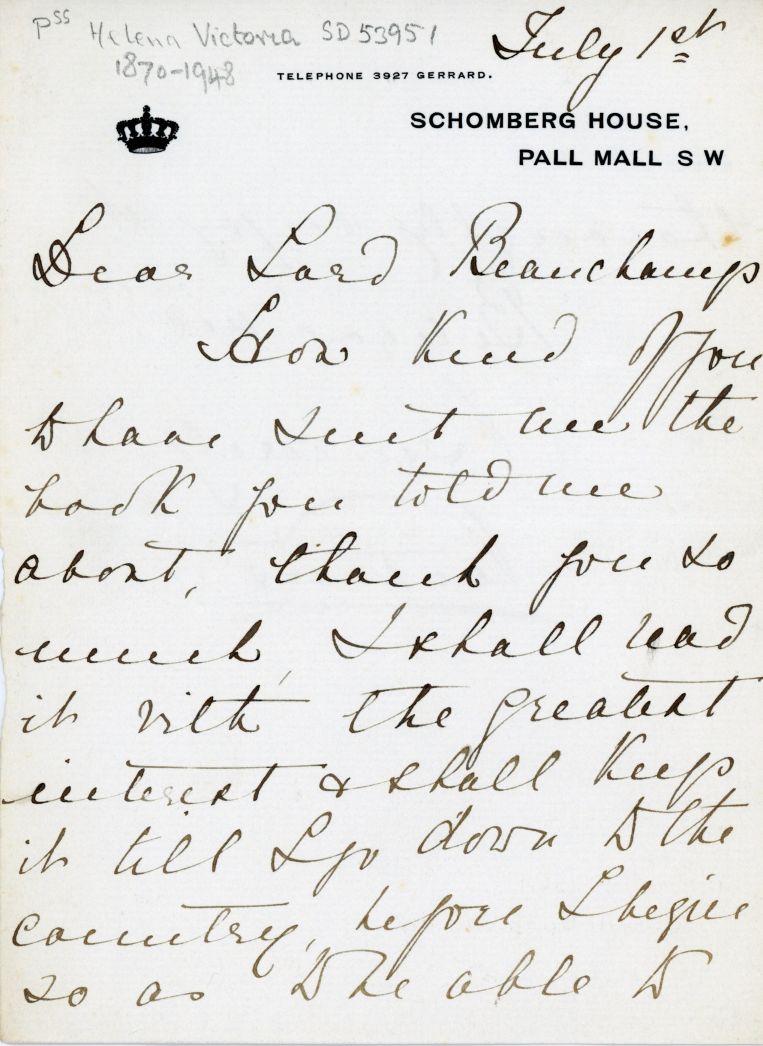 Pss Helena Victoria SD 53951
1870-1948
July 1st
TELEPHONE 3927 GERRARD.
SCHOMBERG HOUSE,
PALL MALL S W
Dear Lord Beauchamp
How kind of you
to have sent me the
book you told me
about, thank you so
much, I shall read
it with the greatest
interest & shall keep
it till I go down to the
country, before I begin
so as to be able to